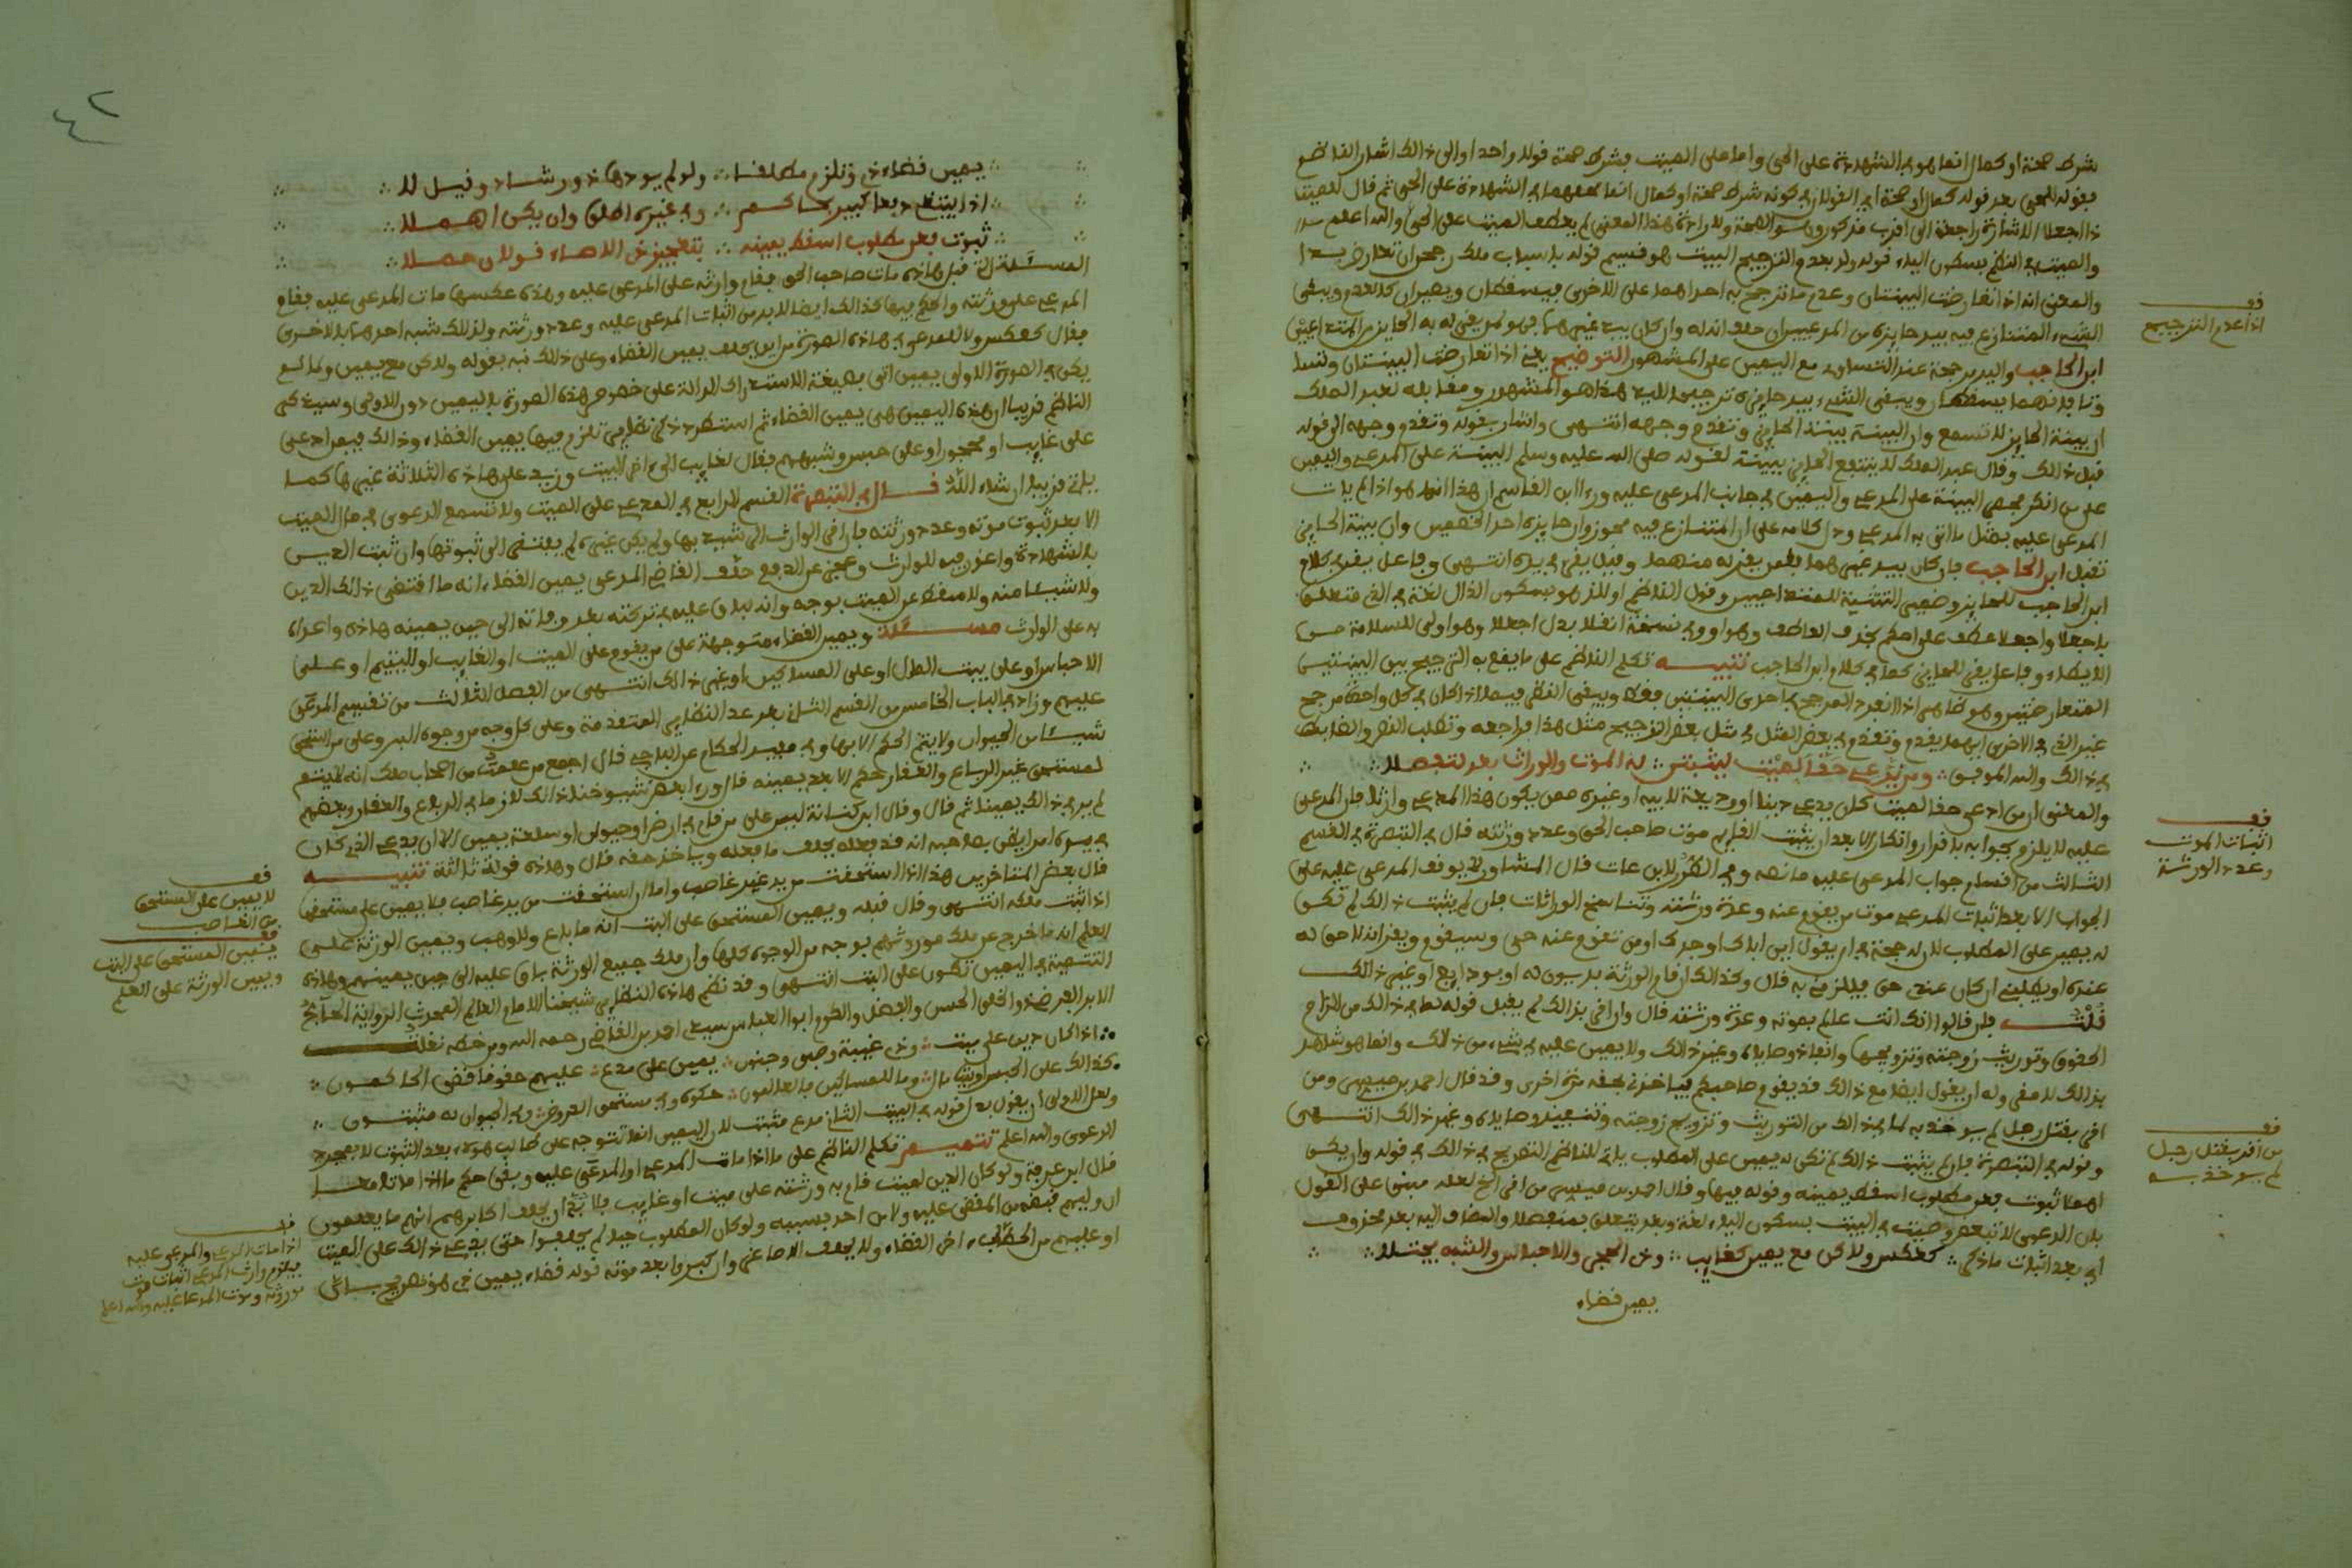 شرط صحة او كمال انما هو في الشهادة على الحي واما على الميت فشرط صحة قولا واحدا والى ذالك اشار الناظم
بقوله للحي بعد قوله كمال او صحة اي القولان في كونه شرط صحة او كمال انما هما في الشهادة على الحي ثم قال لميت
والميت في النظم بسكون الياء قوله ولو بعدم الترجيح البيت هو قسيم قوله باسباب ملك رجحن تعارضا
والمعنى انه اذا تعارضت البينتان وعدم ما ترجح به احداهما على الاخرى فيسقطان ويصيران كالعدم ويبقى
الشيء المتنازع فيه بيد حايزه من المدعيين ان حلف انه له وان كان بيد غيرهما
ابن الحاجب واليد مرجحة عند التساوي مع اليمين على المشهور التوضيح يعني اذا تعارضت البينتان وتساوتا
ويبقى الشيء بيد حايزه ترجيحا لليد هذا هو المشهور ومقابله لعبد الملك
ان بينة الحايز لا تسمع وان البينة بينة الخارج وتقدم وجهه انتهى واشار بقوله وتقدم وجهه الى قوله
قبل ذالك وقال عبد الملك لا ينتفع الحايز ببينة لقوله صلى الله عليه وسلم البينة على المدعي واليمين
على من انكر فجعل البينة على المدعي واليمين في جانب المدعى عليه وراى ابن القاسم ان هذا انما هو اذا لم يات
المدعى عليه بمثل ما اتى به المدعي ودل كلامه على ان المتنازع فيه محوز وان حايزه احد الخصمين وان بينة الحايز
تقبل ابن الحاجب فان كان بيد غيرهما فلمن يقر له منهما وقيل يبقى في يده انتهى وفاعل يقر في كلام
ابن الحاجب للحايز وضمير التثنية للمتداعيين وقول الناظم او للذ هو بسكون الذال لغة في الذي متعلق
باجعلا واجعلا عطف على احكم بحذف العاطف وهو الواو وفي نسخة انقلا بدل اجعلا وهو اولى للسلامة من
الايطاء وفاعل يقر للحايز كما في كلام ابن الحاجب تنبيه تكلم الناظم على ما يقع به الترجيح بين البينتين
المتعارضتين وهو ظاهر اذا انفرد المرجح في احدى البينتين فقط ويبقى النظر فيما اذا كان في كل واحدة مرجح
غير الذي في الاخرى ايهما يقدم وتقدم في بعض المثل في مثل بعض الترجيح مثل هذا فراجعه وتطلب النص والضابط
في ذالك والله الموفق ومن يدعي حقا لميت ليثبتن له الموت والوراث بعد لتفصلا
والمعنى ان من ادعى حقا لميت كان يدعي دينا او وديعة لابيه او غيره ممن يكون هذا المدعي وارثا فان المدعى
عليه لا يلزم جوابه باقرار او انكار الا بعد ان يثبت القايم موت صاحب الحق وعدد ورثته قال في التبصرة في القسم
الثالث من اقسام جواب المدعى عليه ما نصه وفي الطرر لابن عات قال المشاور لا يوقف المدعى عليه على
الجواب الا بعد اثبات المدعي موت من يقوم عنه وعدة ورثته وتناسخ الوراثات فان لم يثبت ذالك لم تكن
له يمين على المطلوب لان له حجة في ان يقول ابن ابيك او جدك او من تقوم عنه حي وسيقوم ويقر انه لا حق له
عندي او يطلبني ان كان عندي حق فيلزمني به قال وكذالك ان قام الورثة بديون له او بودايع او غير ذالك
قلت فان قالوا انك انت عالم بموته وعدة ورثته قال وان اقر بذالك لم يقبل قوله لما في ذالك من الزام
الحقوق وتوريث زوجته وتزويجها وانفاذ وصاياه وغير ذالك ولا يمين عليه في شيء من ذالك وانما هو شاهد
بذالك لا مقر وله ان يقول ايضا مع ذالك قد يقوم صاحبكم فياخذني بحقه مرة اخرى وقد قال احمد بن ميسر من
اقر بقتل رجل لم يوخذ به لما في ذالك من التوريث وتزويج زوجته وتنفيذ وصاياه وغير ذالك انتهى
وقوله في التبصرة فان لم يثبت ذالك لم تكن له يمين على المطلوب ياتي للناظم التصريح في ذالك في قوله وان يكن
اهملا ثبوت فعن مطلوب اسقط يمينه وقوله فيها وقال احمد بن ميسر من اقر الخ لعله مبني على القول
بان الدعوى لا تتبعض وميت في البيت بسكون الياء لغة وبعد يتعلق بمنفصلا والمضاف اليه بعد محذوف
اي بعد اثبات ما ذكر كعكس ولاكن مع يمين كغايب وذي الحجر والاحباس والشبه يجتلا
يمين قضاء
فف
اذا عدم الترجيح
فف
اثبات الموت
وعدد الورثة
فف
من اقر بقتل رجل
لم يوخذ به
٤٢
يمين قضاء ذي وتلزم مطلقا ولو لم يوديها ذوو رشد وقيل لا
وفي غيره اطلق وان يكن اهملا
ثبوت فعن مطلوب اسقط يمينه بتعجيز ذي الامهاء قولان حصلا
المسئلة التي قبل هاذه مات صاحب الحق فقام وارثه على المدعى عليه وهذه عكسها مات المدعى عليه فقام
المدعي على ورثته والحكم فيها كذالك ايضا لا بد من اثبات المدعى عليه وعدد ورثته ولذلك شبه احدهما بالاخرى
فقال كعكس ولا كن للمدعي في هاذه الصورة من ان يحلف يمين القضاء وعلى ذالك نبه بقوله ولاكن مع يمين ولما لم
يكن في الصورة الاولى يمين اتى بصيغة الاستدراك الدالة على خصوص هذه الصورة باليمين دون الاولى وسيذكر
الناظم قريبا ان هذه اليمين هي يمين القضاء ثم استطرد ذكر نظاير تلزم فيها يمين القضاء وذالك فيمن ادعى
على غايب او محجور او على حبس وشبههم فقال كغايب الى اخر البيت وزيد على هاذه الثلاثة غيرها كما
ياتي قريبا ان شاء الله قال في التبصرة القسم الرابع في المدعي على الميت ولا تسمع الدعوى في مال الميت
الا بعد ثبوت موته وعدد ورثته فان اقر الوارث الى شهد بها ولم يكن غيره لم يفتقر الى ثبوتها وان ثبت الدين
بالشهادة واعذر فيه للوارث وعجز عن الدفع حلف القاضي المدعي يمين القضاء انه ما اقتضى ذالك الدين
ولا شيئا منه ولا سقط عن الميت بوجه وانه لباق عليه في تركته بعد وفاته الى حين يمينه هاذه واعداه
به على الوارث مسئلة ويمين القضاء متوجهة على من يقوم على الميت او الغايب او اليتيم او على
الاحباس او على بيت المال او على المساكين او غير ذالك انتهى من الفصل الثالث من تقسيم المدعى
عليهم وزاد في الباب الخامس من القسم الثاني بعد عد النظاير المتقدمة وعلى كل وجه من وجوه البر وعلى من استحق
شيئا من الحيوان ولا يتم الحكم الا بها وفي مفيد الحكام عن الباجي قال اجمع من علمت من اصحاب مالك انه لا يتم
لمستحق غير الرباع والعقار حكم الا بعد يمينه قال وراى بعض شيوخنا ذالك لازما في الرباع والعقار وبعضهم
لم ير في ذالك يمينا ثم قال وقال ابن كنانة ليس على من قام في ارض او حيوان او سلعة يمين الا ان يدعي الذي كان
في يده امرا يظن بصاحبه انه قد فعله يحلف ما فعله وياخذ حقه قال وهاذه قولة ثالثة تنبيه
قال بعض المتاخرين هذا اذا استحقت من يد غير غاصب واما ان استحقت من يد غاصب فلا يمين على مستحقها
اذا اثبت ملكه انتهى وقال قبله ويمين المستحق على البت انه ما باع ولا وهب ويمين الورثة على
العلم انه ما خرج عن ملك موروثهم بوجه من الوجوه كلها وان ملك جميع الورثة باق عليه الى حين يمينهم وهاذه
التتمة في اليمين تكون على البت انتهى وقد نظم هاذه النظاير شيخنا الامام العالم المحدث الراوية الحاج
الابر الفرضي ذو الخلق الحسن والفضل والطوع ابو العباس سيدي احمد بن القاضي رحمه الله ومن خطه نقلت
اذا كان دين على ميت وذي غيبة وصبي وجنون يمين على مدع عليهم حقوقا قضى الحاكمون
كذالك على الحبس او بيت مال وما للمساكين ما لعالمون حكوه وفي مستحق العروض وفي الحيوان له مثبتون
ولعل الاولى ان يقول بدل قوله في البيت الثاني مدع مثبت لان اليمين انما تتوجه على طالب هؤلاء بعد الثبوت لا بمجرد
الدعوى والله اعلم تتميم تكلم الناظم على ما اذا مات المدعي او المدعى عليه وبقي حكم ما اذا ماتا معا
قال ابن عرفة ولو كان الدين لميت قام به ورثته على ميت او غايب فلا بد ان يحلف اكابرهم انهم ما يعلمون
ان وليهم قبضه من المقضي عليه ولا من احد بسببه ولو كان المطلوب حيا لم يحلفوا حتى يدعي ذالك على الميت
او عليهم من الحطاب اخر القضاء ولا يحلف الاصاغر وان كبروا بعد موته قوله قضاء يمين ذي هو تصريح بان
فف
لا يمين على المستحق
من الغاصب
فف
يمين المستحق على البت
ويمين الورثة على العلم
فف
اذا مات المدعي والمدعى عليه
فيلزم وارث المدعي اثبات موت
موروثه وموت المدعا عليه والله اعلم